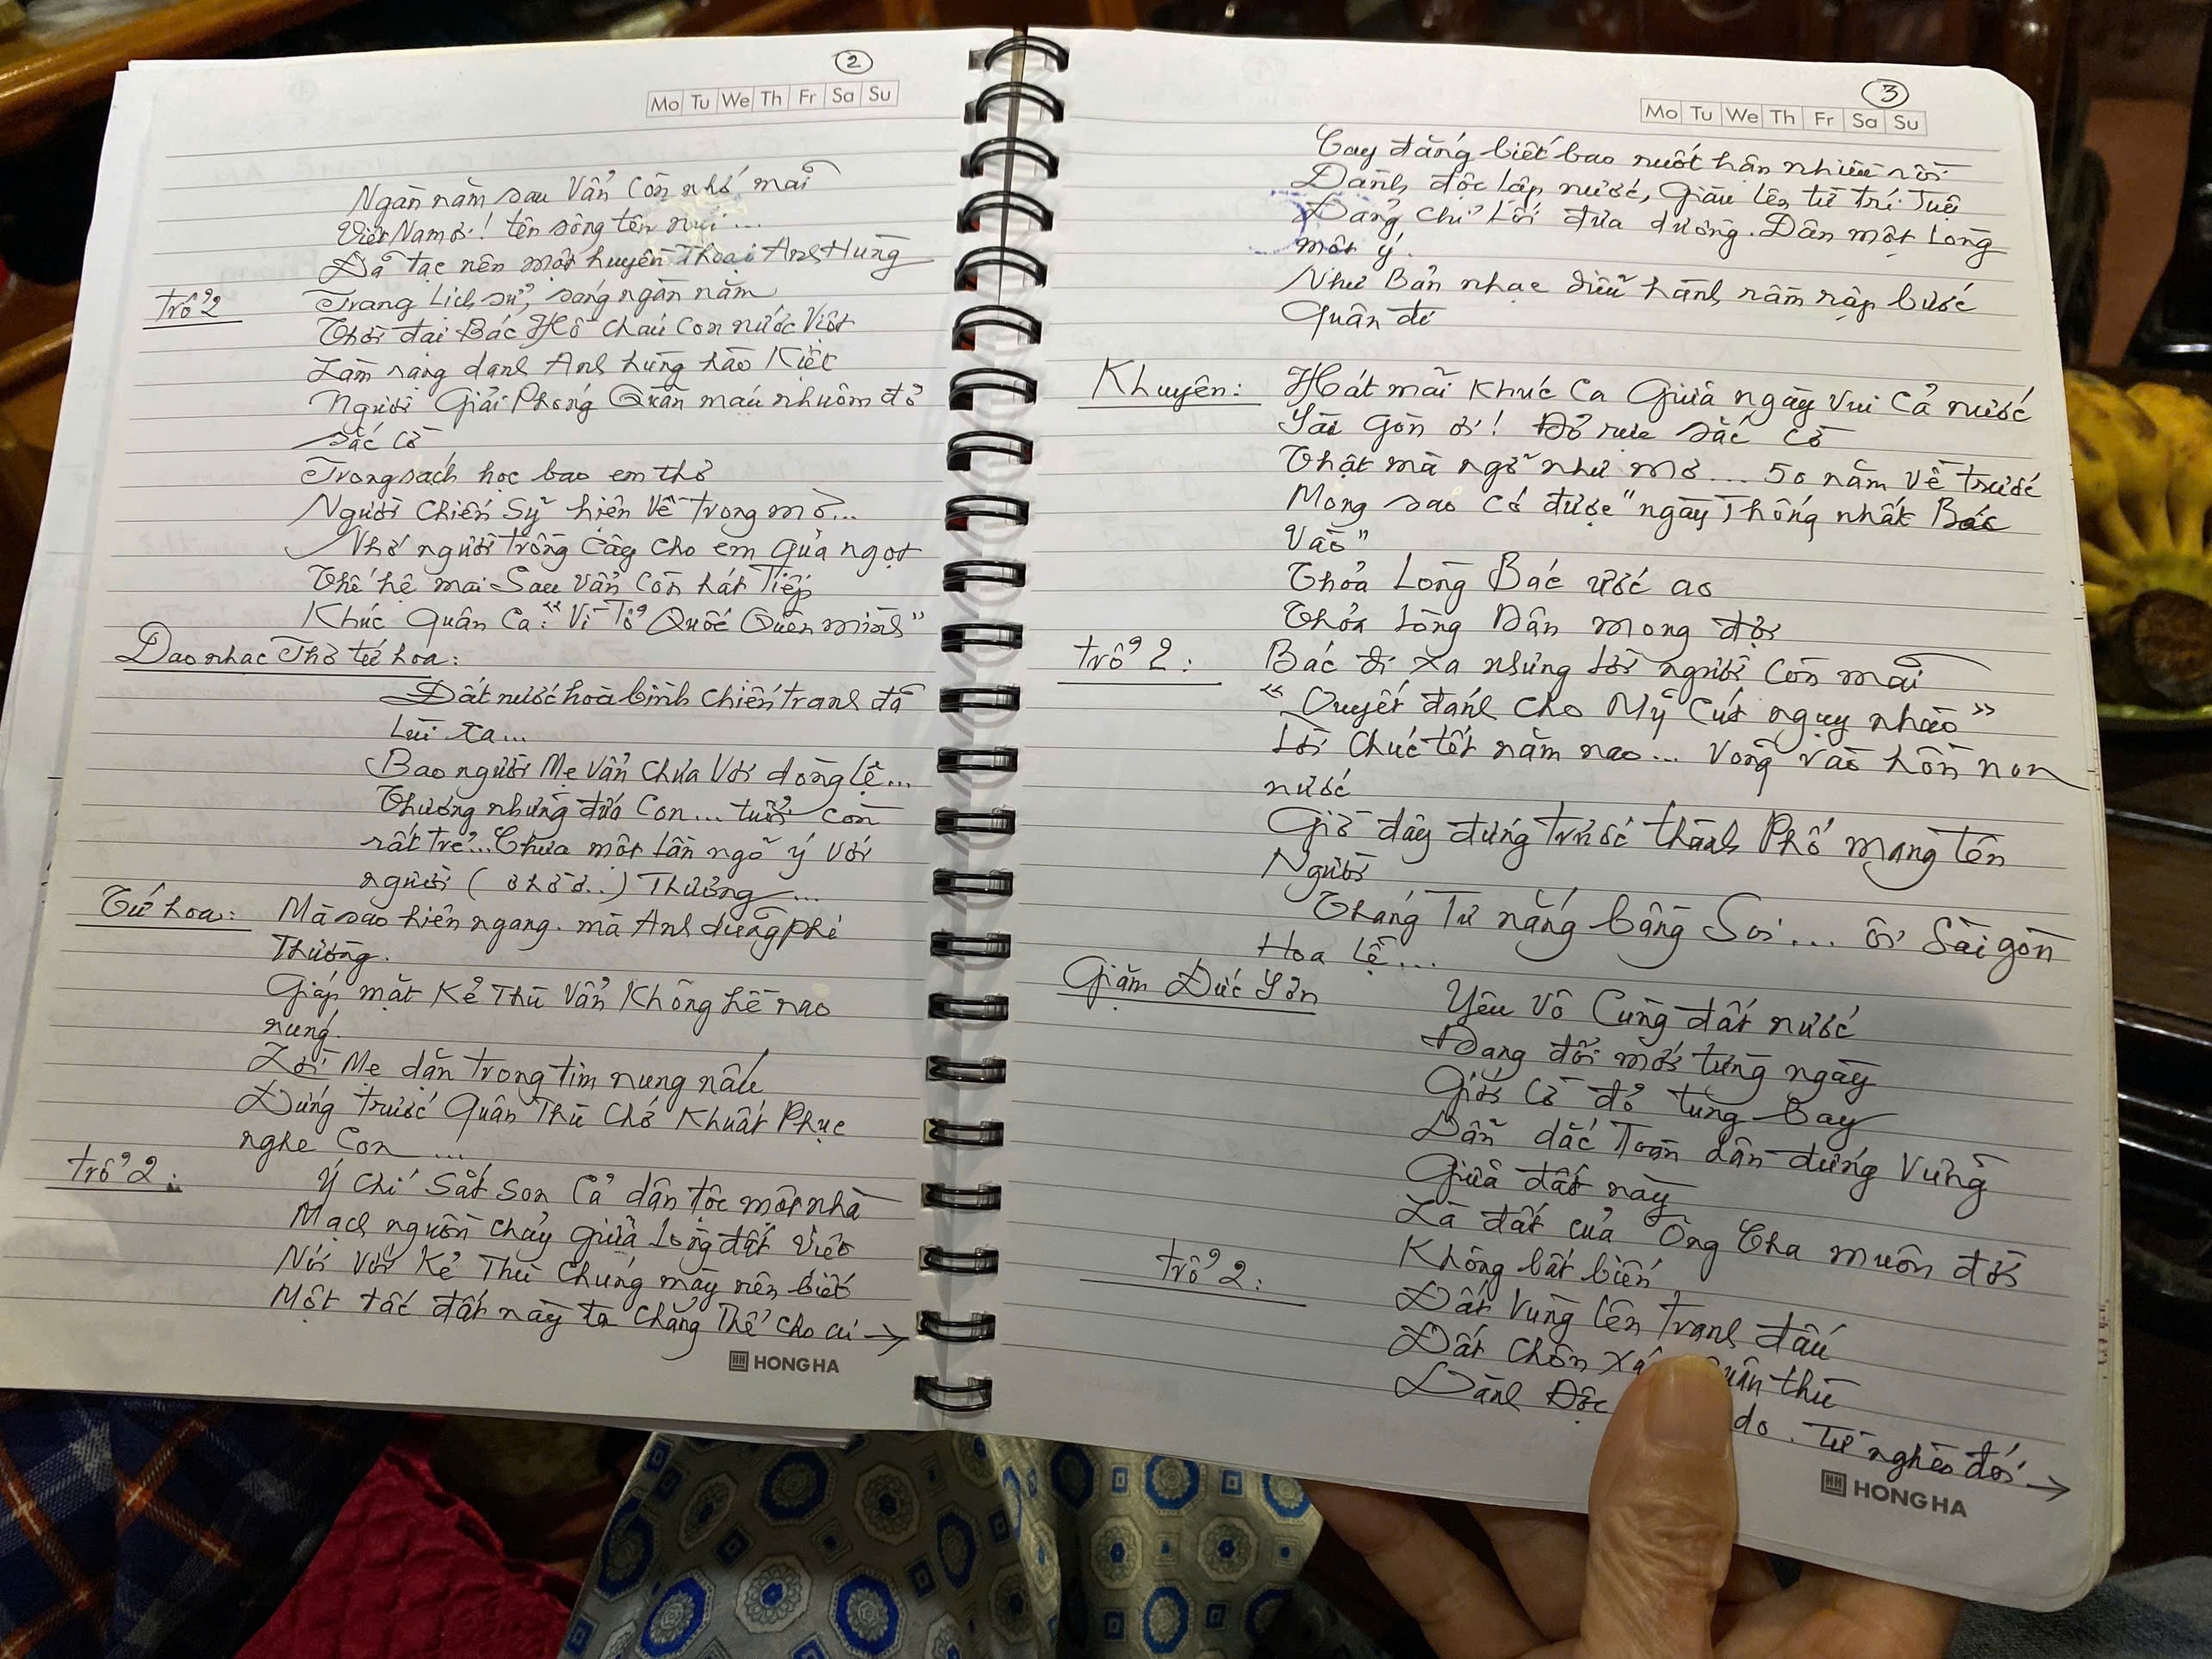 2
Mo Tu We Th Fr Sa Su
Ngàn năm sau vẩn còn nhớ mãi
Việt Nam ơi! tên sông tên núi...
Đã tạc nên một huyền Thoại Anh Hùng
trổ 2
Trang Lịch sử, sáng ngàn năm
Thời đại Bác Hồ cháu con nước Việt
Làm rạng danh Anh hùng hào Kiệt
Người Giải Phóng Quân máu nhuộm đỏ
sắc cờ
Trong sách học bao em thơ
Người Chiến Sỹ hiện về trong mơ...
Nhớ người trồng cây cho em quả ngọt
Thế hệ mai Sau vẩn còn hát Tiếp
Khúc Quân Ca: "Vì Tổ Quốc Quên mình"
Dạo nhạc Thơ tứ hoa:
Đất nước hoà bình chiến tranh đã
lùi xa...
Bao người Mẹ vẩn chưa vơi dòng lệ...
Thương những đứa con... tuổi còn
rất trẻ... Chưa một lần ngỏ ý với
người ( ơ hờ ơ..) Thương...
Tứ hoa:
Mà sao hiên ngang. mà Anh dũng phi
Thường.
Giáp mặt Kẻ Thù vẩn Không hề nao
núng.
Lời Mẹ dặn trong tim nung nấu
Đứng trước Quân Thù chớ Khuất Phục
nghe con ...
trổ 2:
Ý chí Sắt son cả dân tộc một nhà
Mạch nguồn chảy giữa lòng đất Việt
Nói với Kẻ Thù chúng mày nên biết
Một tấc đất này ta chẳng Thể cho ai →
HONG HA
3
Mo Tu We Th Fr Sa Su
Cay đắng biết bao nuốt hận nhiều rồi
Dành độc lập nước, Giàu lên từ trí Tuệ
Đảng chỉ lối đưa đường. Dân một lòng
một ý.
Như Bản nhạc diễu hành rầm rập bước
Quân đi
Khuyên:
Hát mãi Khúc Ca Giữa ngày vui cả nước
Sài Gòn ơi! Đỏ rực sắc cờ
Thật mà ngỡ như mơ... 50 năm về trước
Mong sao có được "ngày Thống nhất Bác
Vào"
Thỏa Lòng Bác ước ao
Thỏa lòng Dân mong đợi
trổ 2:
Bác đi xa nhưng lời người còn mãi
"Quyết đánh cho Mỹ Cút ngụy nhào"
Lời Chúc tết năm nao... Vọng vào hồn non
nước
Giờ đây đứng trước thành Phố mang tên
Người
Tháng Tư nắng bâng Soi... ơi Sài gòn
Hoa lệ...
Giặm Đức Sơn
Yêu vô Cùng đất nước
Đang đổi mới từng ngày
Giới cờ đỏ tung bay
Dẫn dắc Toàn dân đứng Vững
Giữa đất này
Là đất của Ông Cha muôn đời
Không bất biến
trổ 2:
Đất Vùng lên tranh đấu
Đất chôn thù
Dành Độc do. Từ nghèo đói →
HONG HA